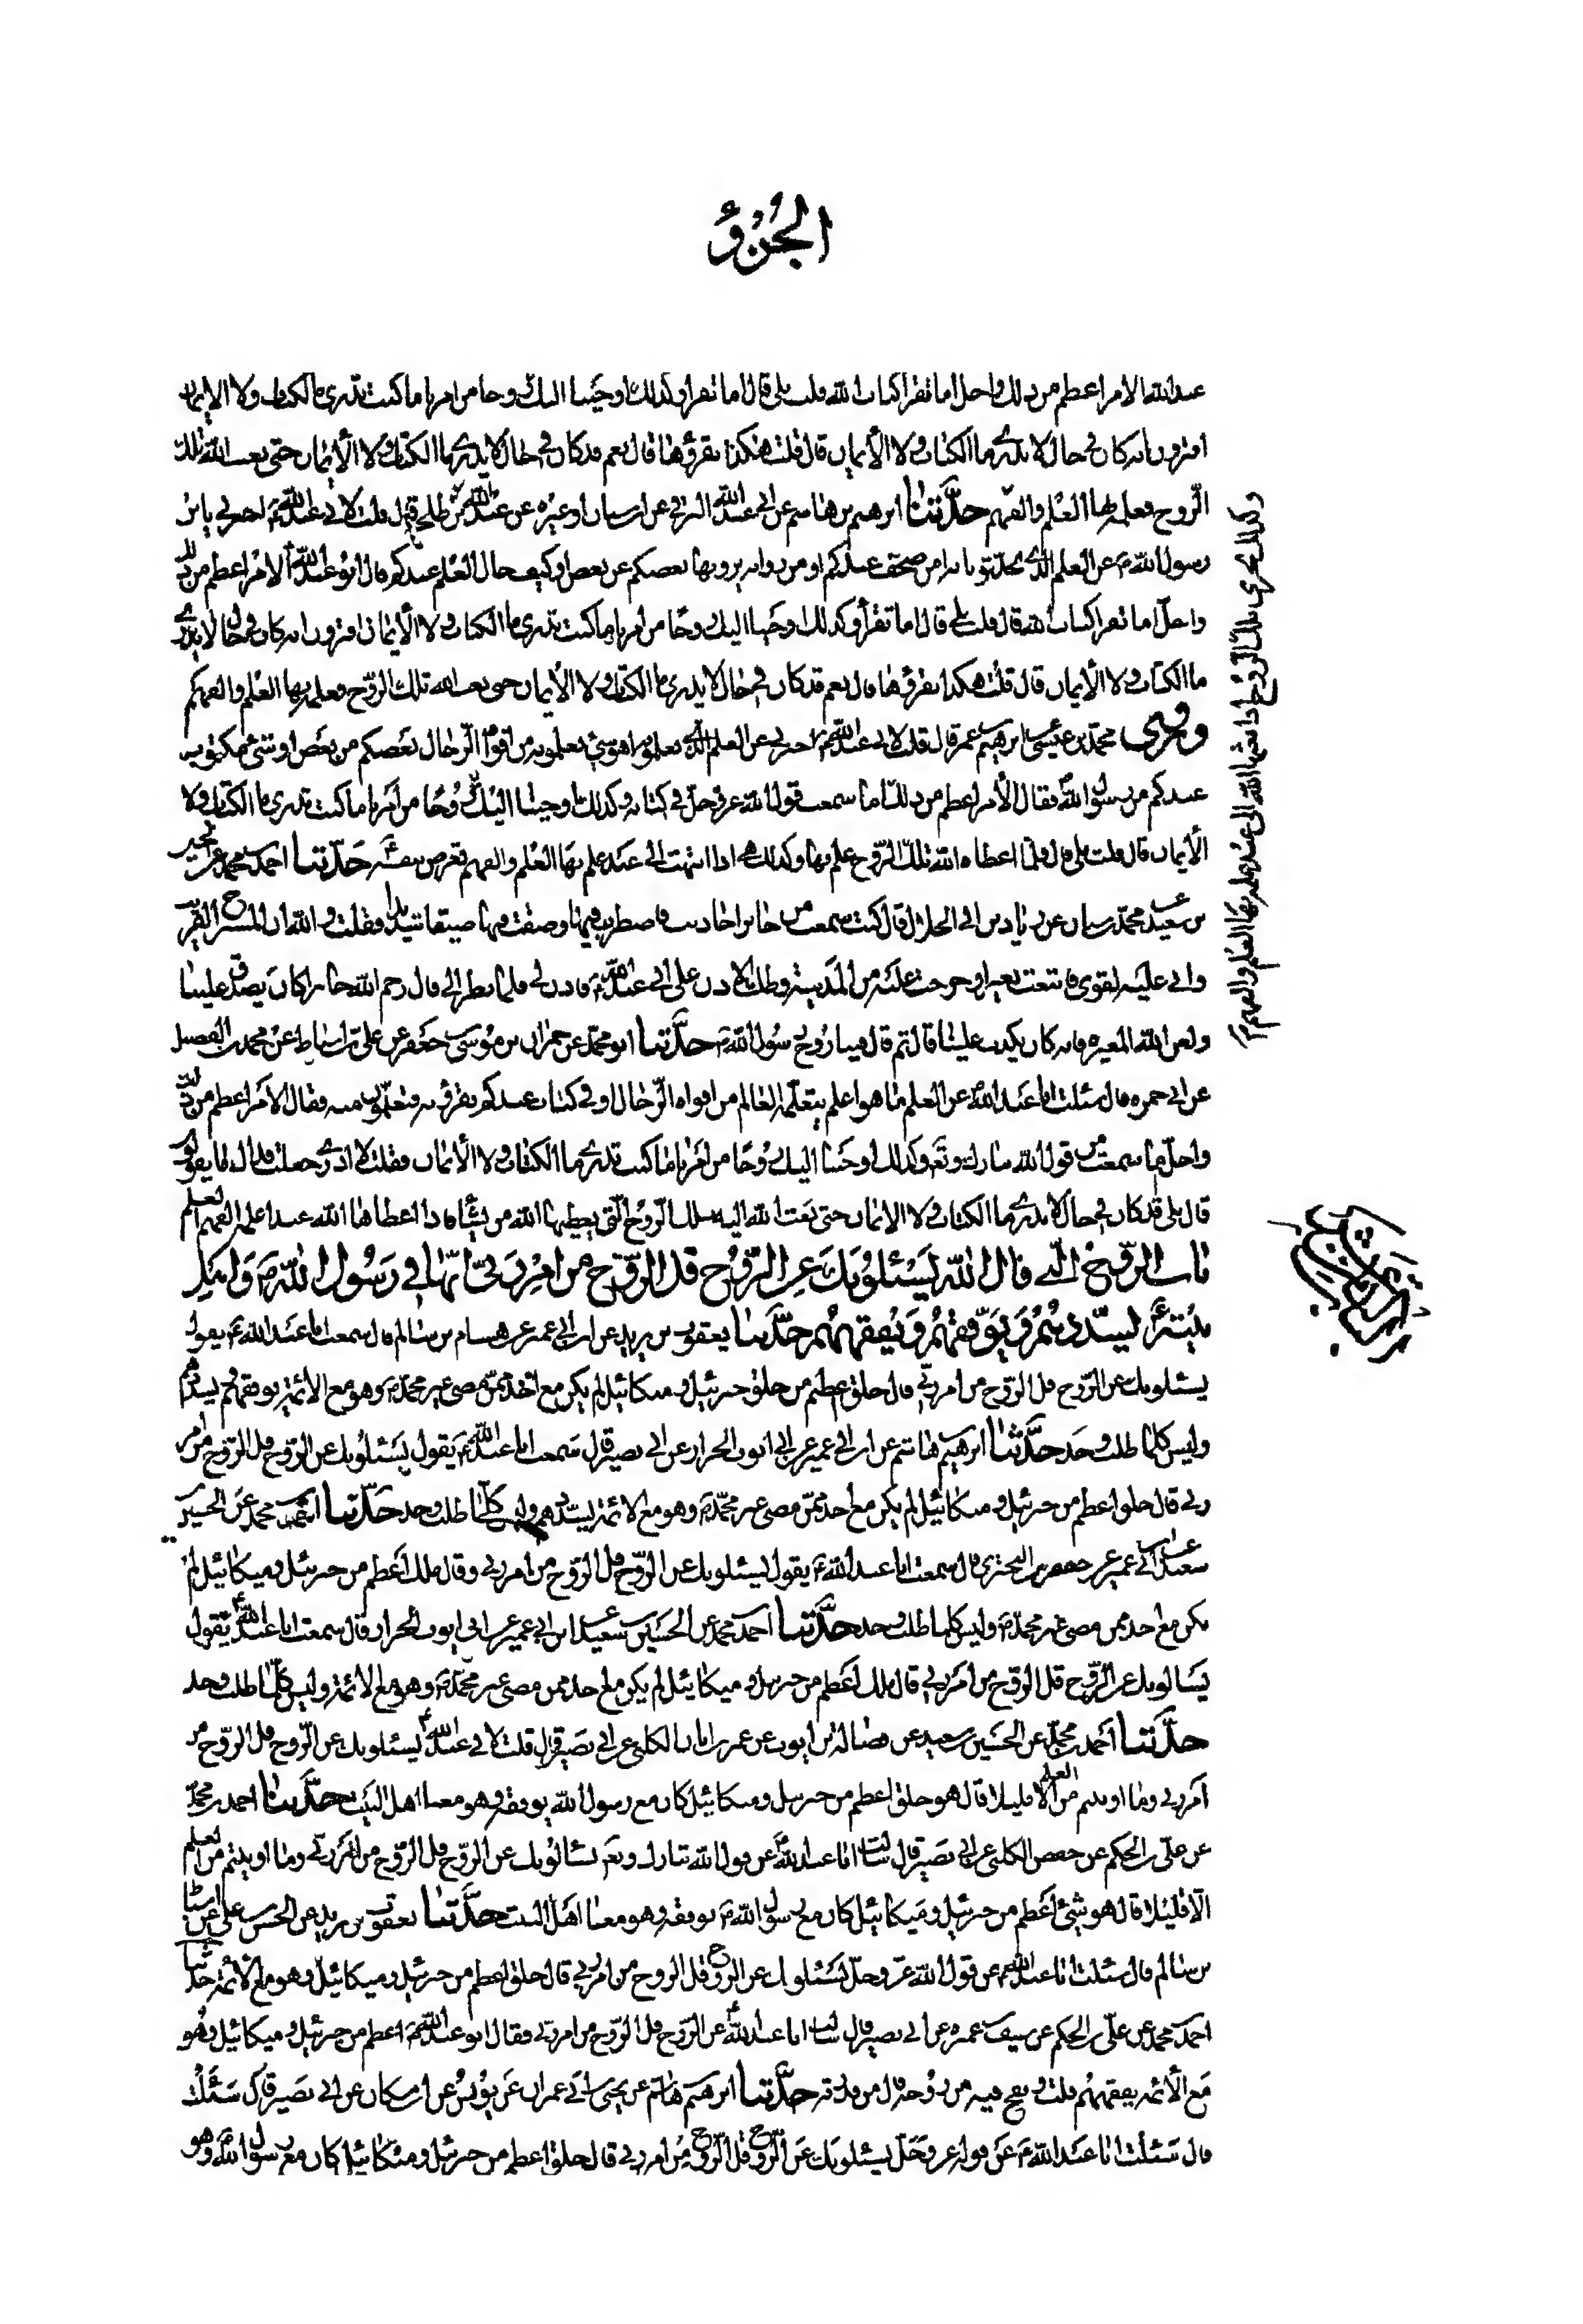 الجزؤ
عبد الله الامر اعظم من ذلك واجل اما تقرأ كتاب الله قلت بلى قال اما تقرأ وكذلك اوحينا اليك روحا من امرنا ما كنت تدري ما الكتاب ولا الايمان
افترون انه كان في حال لا يدري ما الكتاب ولا الأيمان قال قلت هكذا نقرؤها قال نعم قد كان في حال لا يدري ما الكتاب ولا الأيمان حتى بعث الله تلك
الرّوح فعلمه بها العلم والفهم حدّثنا ابرهيم بن هاشم عن ابي عبد الله البرقي عن ابن سنان او غيره عن عبد الله بن طلحة قال قلت لابي عبد الله ع اخبرني يا بن
رسول الله ص عن العلم الذي تحدّثونا به امن صحف عندكم او من رواية يرويها بعضكم عن بعض او كيف حال العلم عندكم قال ابو عبد الله ع الامر اعظم من ذلك
واجلّ اما تقرأ كتاب الله قال قلت بلى قال اما تقرأ وكذلك اوحينا اليك روحًا من امرنا ما كنت تدري ما الكتاب ولا الأيمان افترون انه كان في حال لا يدري
ما الكتاب ولا الأيمان قال قلت هكذا نقرؤها قال نعم قد كان في حال لا يدري ما الكتاب ولا الأيمان حتى بعث الله تلك الرّوح فعلمه بها العلم والفهم كم
وتجري محمد بن عيسى ابرهيم عمر قال قلت لابي عبد الله ع اخبرني عن العلم الذي تعلمونه اهو شيء تعلمونه من افواه الرّجال بعضكم من بعض او شيء مكتوب
عندكم من رسول الله ص فقال الأمر اعظم من ذلك اما سمعت قول الله عز وجلّ في كتابه وكذلك اوحينا اليك روحًا من امرنا ما كنت تدري ما الكتاب ولا
الأيمان قال قلت بلى قال فلما اعطاه الله تلك الرّوح علم بها وكذلك هي اذا انتهت الى عبد علم بها العلم والفهم يعرض بنفسه حدّثنا احمد بن محمد عن الحسين
بن سعيد عن محمد بن سنان عن زياد بن ابي الحلال قال كنت سمعت من جابر احاديث فاضطرب فيها وضقت فيها ضيقا شديدا فقلت والله ان المستراح لقريب
واني عليه لقوي فابتعت بعيرا وخرجت عليه من المدينة وطلبت الاذن على ابي عبد الله ع فاذن لي فلما نظر الي قال رحم الله جابرا كان يصدق علينا
ولعن الله المغيرة فانه كان يكذب علينا قال ثم قال فينا روح رسول الله ص حدّثنا ابو محمد عن حمران بن موسى بن جعفر عن علي بن اسباط عن محمد بن الفضيل
عن ابي حمزة قال سئلت ابا عبد الله ع عن العلم ما هو اعلم يتعلّمه العالم من افواه الرّجال او في كتاب عندكم تقرؤنه فتعلمون منه فقال الامر اعظم من ذلك
واجلّ اما سمعت من قول الله تبارك وتع وكذلك اوحينا اليك روحًا من امرنا ما كنت تدري ما الكتاب ولا الأيمان فقلت لا ادري جعلت فداك ما يقولون
قال بلى قد كان في حال لا يدري ما الكتاب ولا الايمان حتى بعث الله اليه تلك الرّوح التي يعطيها الله من يشاء فاذا اعطاها الله عبدا علمه الفهم العلم
باب الرّوح الّتي قال الله يسئلونك عن الرّوح قل الرّوح من امر ربّي انّها في رسول الله ص واهل
بيته ع يسدّدهم ويوفّقهم ويفقههم حدّثنا يعقوب بن يزيد عن ابن ابي عمير عن هشام بن سالم قال سمعت ابا عبد الله ع يقول
يسئلونك عن الرّوح قل الرّوح من امر ربّي قال خلق اعظم من خلق جبرئيل وميكائيل لم يكن مع احد ممّن مضى غير محمد ص وهو مع الائمة يوفقهم ويسددهم
وليس كلما طلب وجد حدّثنا ابرهيم بن هاشم عن ابن ابي عمير عن ابي ايوب الخراز عن ابي بصير قال سمعت ابا عبد الله ع يقول يسئلونك عن الرّوح قل الرّوح من امر
ربي قال خلق اعظم من جبرئيل وميكائيل لم يكن مع احد ممّن مضى غير محمّد ص وهو مع الائمة يسددهم وليس كلّما طلب وجد حدّثنا احمد بن محمد عن الحسين
بن سعيد عن ابن ابي عمير عن حفص بن البختري قال سمعت ابا عبد الله ع يقول يسئلونك عن الرّوح قل الرّوح من امر ربي وقال ملك اعظم من جبرئيل وميكائيل لم
يكن مع احد ممن مضى غير محمّد ص وليس كلما طلب وجد حدّثنا احمد بن محمد عن الحسين بن سعيد عن ابن ابي عمير عن ابي ايوب الخراز قال سمعت ابا عبد الله ع يقول
يسالونك عن الرّوح قل الروح من امر ربي قال ملك اعظم من جبرئيل وميكائيل لم يكن مع احد ممن مضى غير محمّد ص وهو مع الائمة وليس كلّما طلب وجد
حدّثنا احمد بن محمد عن الحسين بن سعيد عن فضالة بن ايوب عن عمر بن ابان الكلبي عن ابي بصير قال قلت لابي عبد الله ع يسئلونك عن الرّوح قل الروح من
امر ربي وما اوتيتم من العلم الا قليلا قال هو خلق اعظم من جبرئيل وميكائيل كان مع رسول الله يوفقه وهو معنا اهل البيت حدّثنا احمد بن محمّد
عن علي بن الحكم عن حفص الكلبي عن ابي بصير قال سالت ابا عبد الله ع عن قول الله تبارك وتع يسالونك عن الرّوح قل الرّوح من امر ربّي وما اوتيتم من العلم
الا قليلا قال هو شيء اعظم من جبرئيل وميكائيل كان مع رسول الله ص يوفقه وهو معنا اهل البيت حدّثنا يعقوب بن يزيد عن الحسن بن علي عن اسباط
بن سالم قال سئلت ابا عبد الله ع عن قول الله عز وجلّ يسئلونك عن الروح قل الروح من امر ربي قال خلق اعظم من جبرئيل وميكائيل وهو مع الائمة حدّثنا
احمد بن محمد عن علي بن الحكم عن سيف بن عميرة عن ابي بصير قال سالت ابا عبد الله ع عن الرّوح قل الرّوح من امر ربّي فقال ابو عبد الله ع اعظم من جبرئيل وميكائيل وهو
مع الأئمة يفقههم قلت ونفخ فيه من روحه قال من قدرته حدّثنا ابرهيم بن هاشم عن يحيى بن ابي عمران عن يونس عن ابن مسكان عن ابي بصير قال سئلت
قال سئلت ابا عبد الله ع عن قوله عز وجلّ يسئلونك عن الرّوح قل الرّوح من امر ربي قال خلق اعظم من جبرئيل وميكائيل كان مع رسول الله ص وهو
وكذلك تجري تلك الروح اذا بعثها الله الى عبد علمه بها العلم والفهم